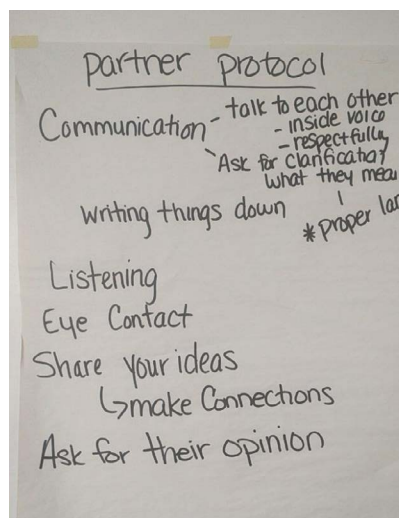 partner protocol
Communication - talk to each other
- inside voice
- respectfully
Ask for clarification
what they
Writing things down
* proper
Listening
Eye Contact
Share your ideas
↳ make Connections
Ask for their opinion